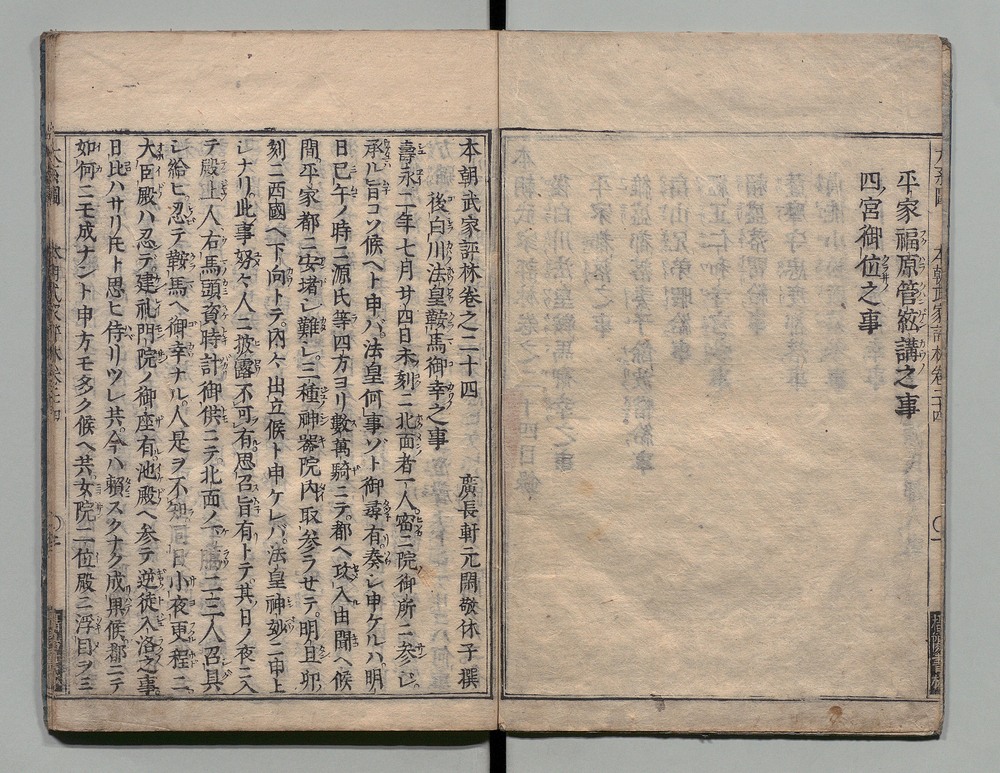 平家福原管絃講之事
四宮御位之事
本朝武家評林卷之二十四
廣長軒元閑敬休子撰
後白川法皇鞍馬御幸之事
壽永二年七月廿四日未刻ニ北面者一人密ニ院御所ニ参シ
承ル旨コソ候ヘト申ハ法皇何事ソト御尋有奏シ申ケルハ明
日巳午ノ時ニ源氏等四方ヨリ數萬騎ニテ都ヘ攻入由聞ヘ候
間平家都ニ安堵シ難シ三種神器院内取参ラせテ明旦卯
刻ニ西國ヘ下向トテ内々出立候ト申ケレバ法皇神妙ニ申上
シナリ此事努々人ニ披露不可有思召旨有トテ其日ノ夜ニ入
テ殿上人右馬頭資時計御供ニテ北面ノ下臈二三人召具
シ給ヒ忍テ鞍馬ヘ御幸ナル人是ヲ不知同日小夜更程ニ
大臣殿ハ忍テ建礼門院ノ御座有池殿ヘ参テ逆徒入洛之事
日比ハサリ氏ト思ヒ侍リツレ共今ハ頼スクナク成果候都ニテ
如何ニモ成ナント申方モ多ク候ヘ共女院二位殿ニ浮目ヲミ